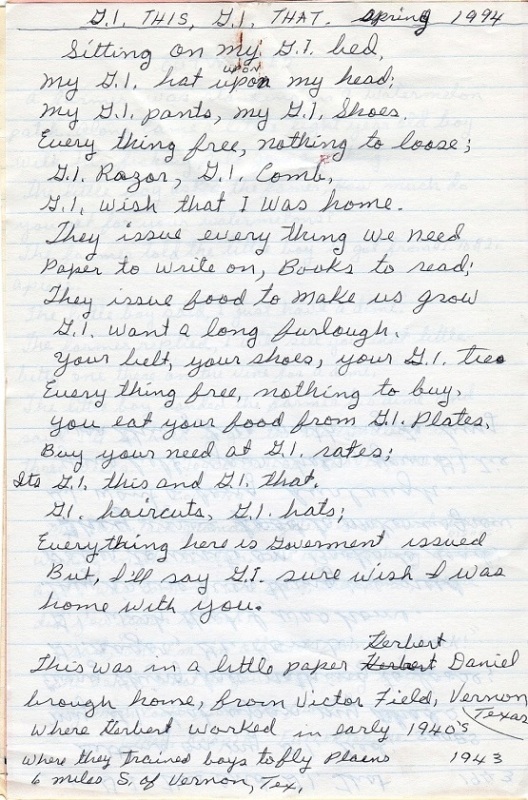 G.I. THIS, G.I. THAT. Spring 1994
Sitting on my G.I. bed,
My G.I. hat upon my head;
My G.I. pants, my G.I. Shoes.
Every thing free, nothing to loose;
G.I. Razor, G.I. Comb,
G.I. wish that I was home.
They issue every thing we need
Paper to write on, Books to read;
They issue food to make us grow
G.I. want a long furlough.
Your belt, your shoes, your G.I. tie
Every thing free, nothing to buy,
You eat your food from G.I. Plates,
Buy your need at G.I. rates;
Its G.I. this and G.I. that.
G.I. haircuts, G.I. hats;
Everything here is Goverment issued
But, I'll say G.I. sure wish I was
home with you.
This was in a little paper Herbert Daniel
brough home, from Victor Field, Vernon Texas
where Herbert worked in early 1940's
where they trained boys to fly Plains 1943
6 miles S. of Vernon, Tex,